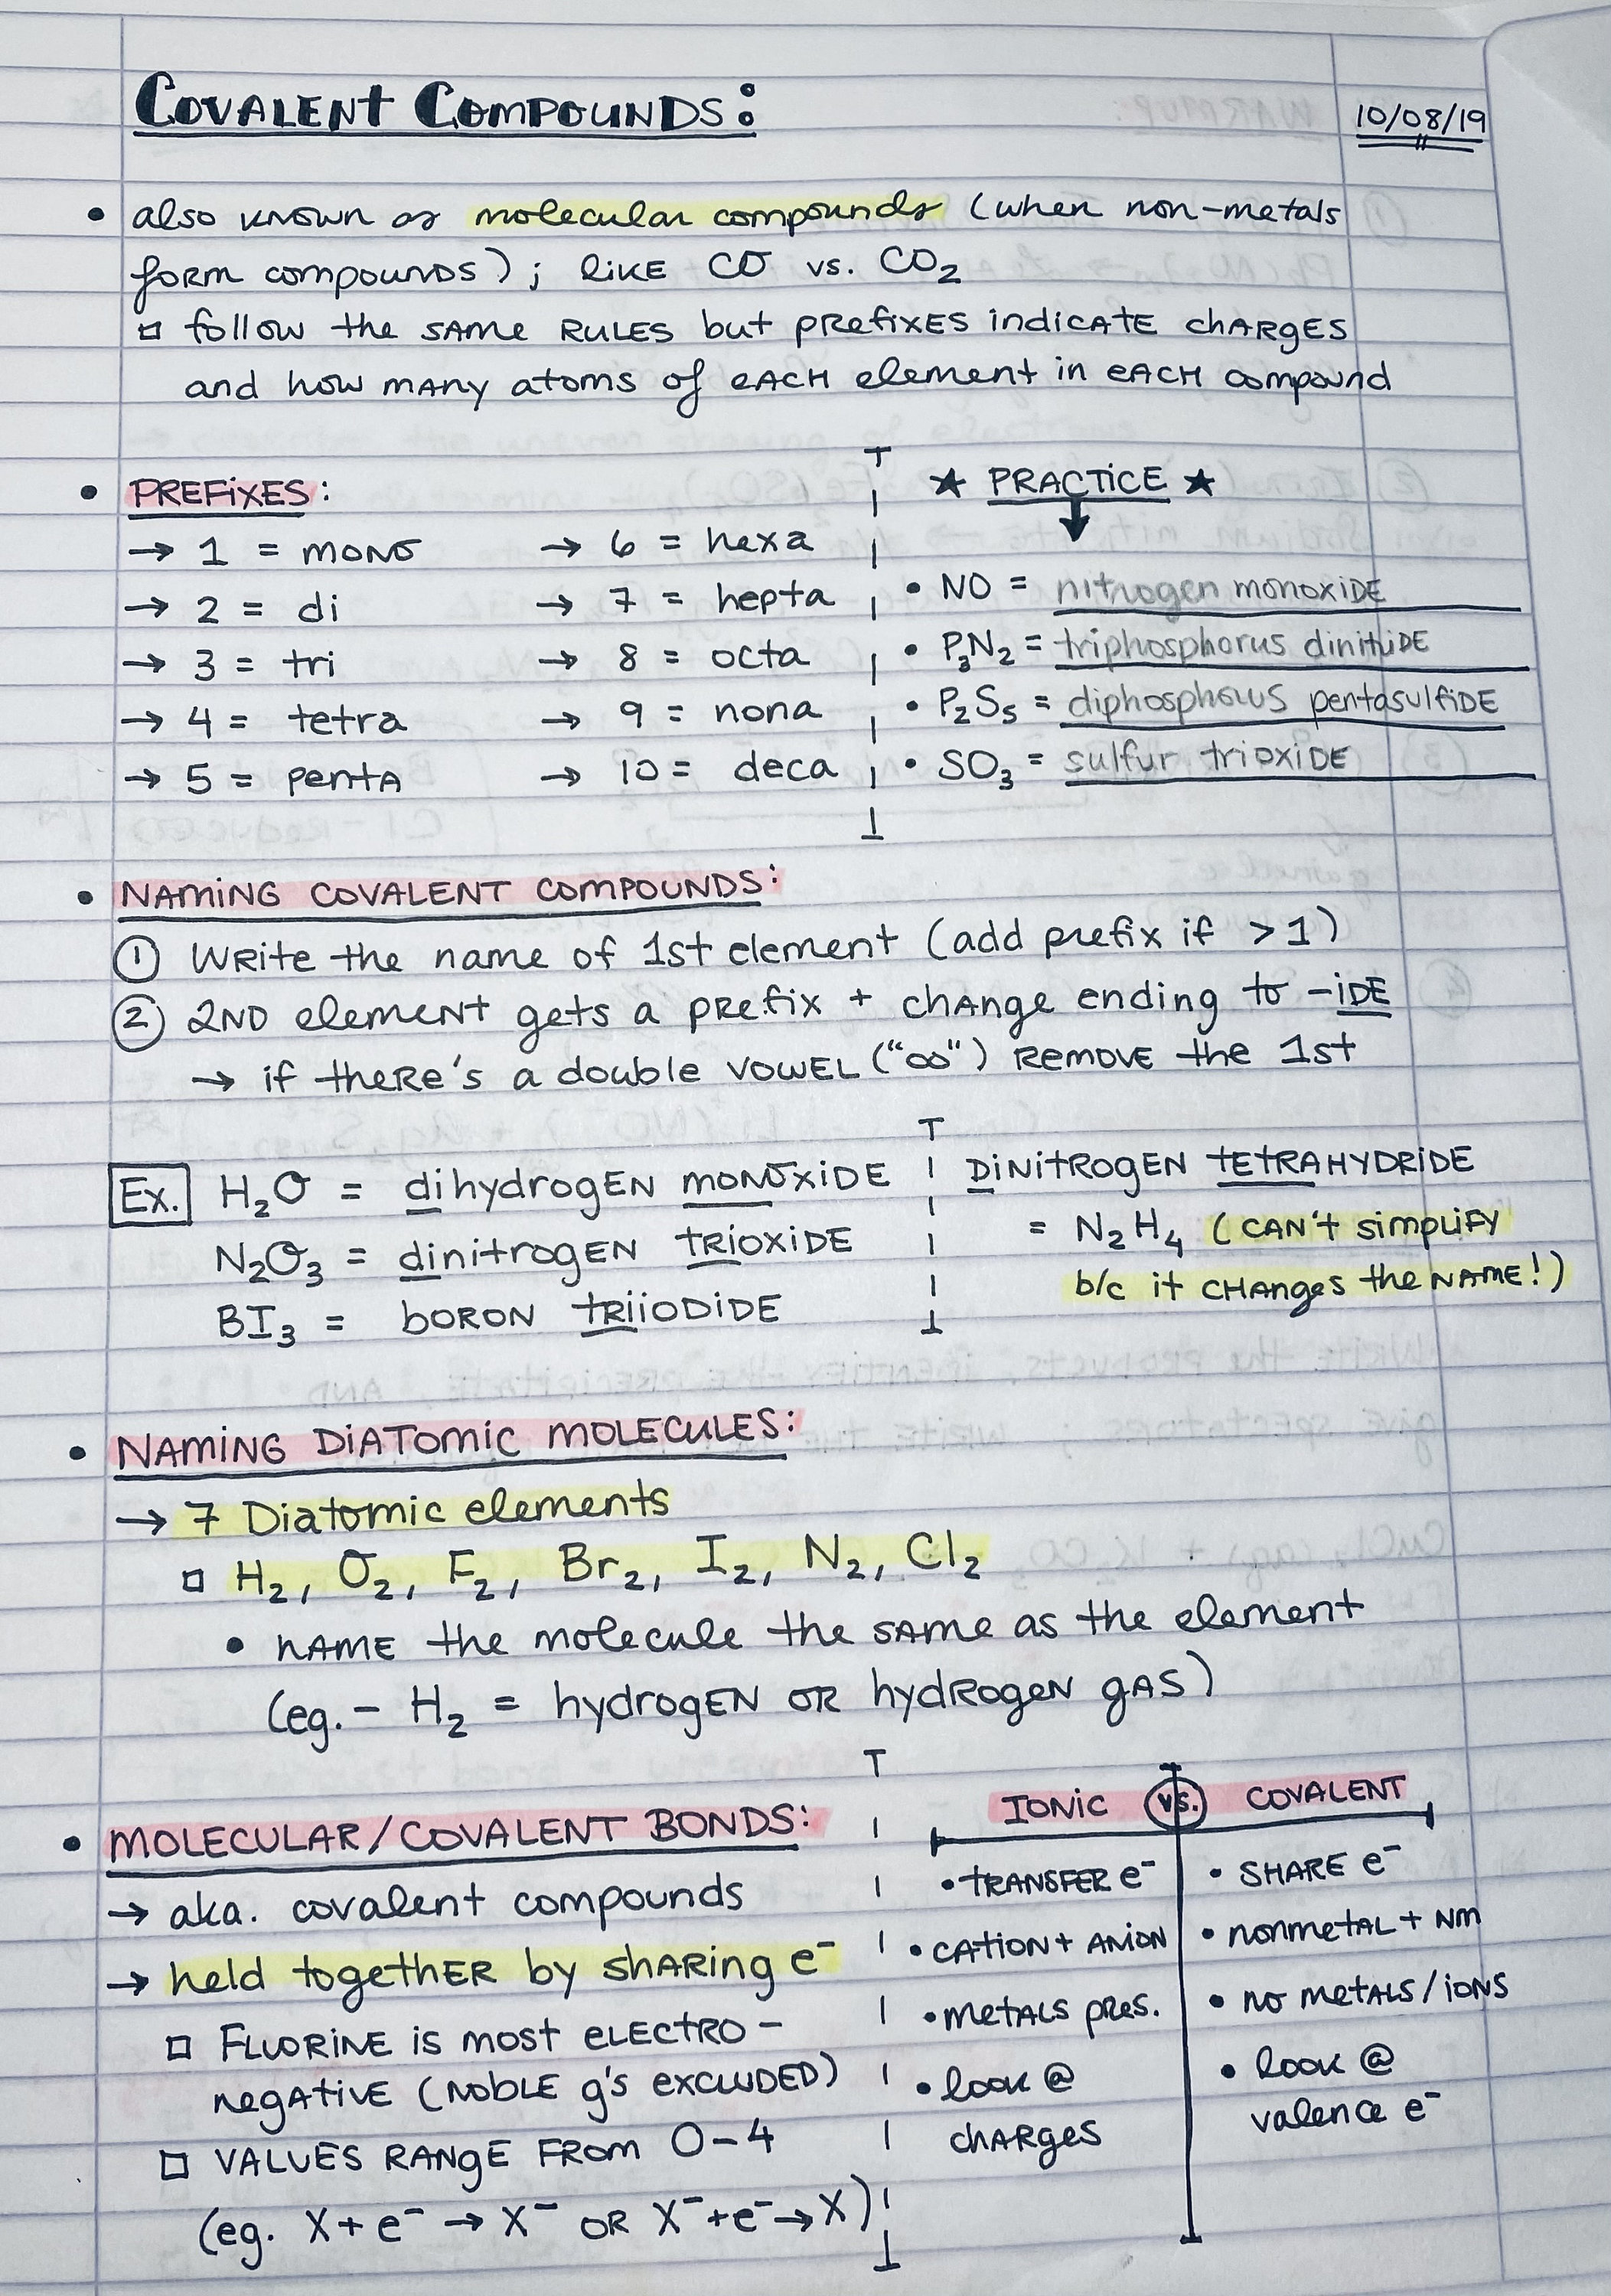 COVALENT COMPOUNDS:
10/08/19
• also known as molecular compounds (when non-metals
form compounds); like CO vs. CO₂
▫ follow the same rules but prefixes indicate charges
and how many atoms of each element in each compound
• PREFIXES:
→ 1 = mono
→ 2 = di
→ 3 = tri
→ 4 = tetra
→ 5 = penta
→ 6 = hexa
→ 7 = hepta
→ 8 = octa
→ 9 = nona
→ 10 = deca
★ PRACTICE ★
↓
• NO = nitrogen monoxide
• P₃N₂ = triphosphorus dinitride
• P₂S₅ = diphosphorus pentasulfide
• SO₃ = sulfur trioxide
• NAMING COVALENT COMPOUNDS:
① Write the name of 1st element (add prefix if >1)
② 2nd element gets a prefix + change ending to -ide
→ if there's a double vowel ("oo") remove the 1st
Ex. H₂O = dihydrogen monoxide
N₂O₃ = dinitrogen trioxide
BI₃ = boron triiodide
Dinitrogen tetrahydride
= N₂H₄ (can't simplify
b/c it changes the name!)
• NAMING DIATOMIC MOLECULES:
→ 7 Diatomic elements
▫ H₂, O₂, F₂, Br₂, I₂, N₂, Cl₂
• name the molecule the same as the element
(eg. - H₂ = hydrogen or hydrogen gas)
• MOLECULAR/COVALENT BONDS:
→ aka. covalent compounds
→ held together by sharing e⁻
▫ Fluorine is most electro-
negative (noble g's excluded)
▫ values range from 0-4
(eg. X + e⁻ → X⁻ or X⁻ + e⁻ → X)
IONIC vs. COVALENT
• transfer e⁻
• cation + anion
• metals pres.
• look @
charges
• share e⁻
• nonmetal + nm
• no metals/ions
• look @
valence e⁻